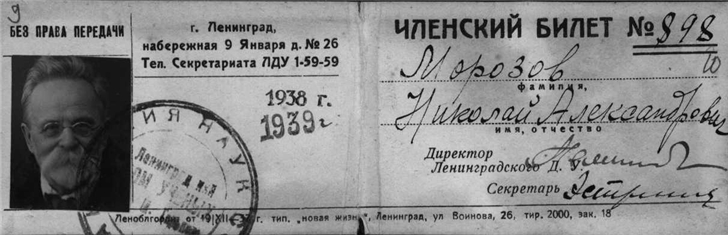 9
БЕЗ ПРАВА ПЕРЕДАЧИ
г. Ленинград,
набережная 9 Января д. № 26
Тел. Секретариата ЛДУ 1-59-59
1938 г.
1939 г.
ИЯ НАУК
Ленингр д кий
ДОМ УЧЕНЫХ
ЧЛЕНСКИЙ БИЛЕТ № 898
Морозов
фамилия,
Николай Александрович
имя, отчество
Директор
Ленинградского Д. У.
Секретарь
Леноблгорлит от 19|XII-37 г. тип. „новая жизнь", Ленинград, ул Воинова, 26, тир. 2000, зак. 18